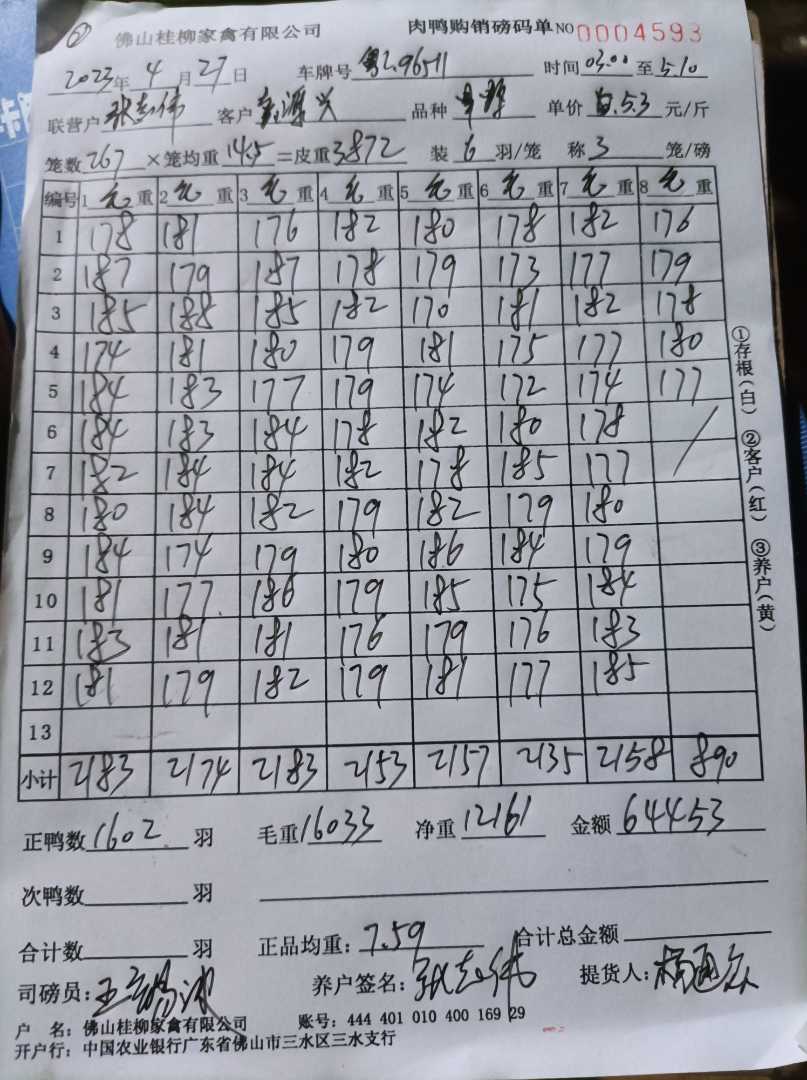 佛山桂柳家禽有限公司 肉鸭购销磅码单 NO 0004593
2023年4月27日 车牌号 粤L96511 时间 03.00 至 5.10
联营户 张志伟 客户 源兴 品种 单价 5.3 元/斤
笼数 267 ×笼均重 14.5 =皮重 3872 装 6 羽/笼 称 3 笼/磅
编号 1 毛 重 2 毛 重 3 毛 重 4 毛 重 5 毛 重 6 毛 重 7 毛 重 8 毛 重
1 178 181 176 182 180 178 182 176
2 187 179 187 178 179 173 177 179
3 185 188 185 182 170 181 182 178
4 174 181 180 179 181 175 177 180
5 184 183 177 179 174 172 174 177
6 184 183 184 178 182 180 178
7 182 184 184 182 178 185 177
8 180 184 182 179 182 179 180
9 184 174 179 180 186 184 179
10 181 177 186 179 185 175 184
11 183 181 181 176 179 176 183
12 181 179 182 179 181 177 185
13
小计 2183 2174 2183 2153 2157 2135 2158 890
①存根(白) ②客户(红) ③养户(黄)
正鸭数 1602 羽 毛重 16033 净重 12161 金额 64453
次鸭数 羽
合计数 羽 正品均重: 7.59 合计总金额
司磅员: 养户签名: 张志伟 提货人:
户 名: 佛山桂柳家禽有限公司 账号: 444 401 010 400 169 29
开户行: 中国农业银行广东省佛山市三水区三水支行